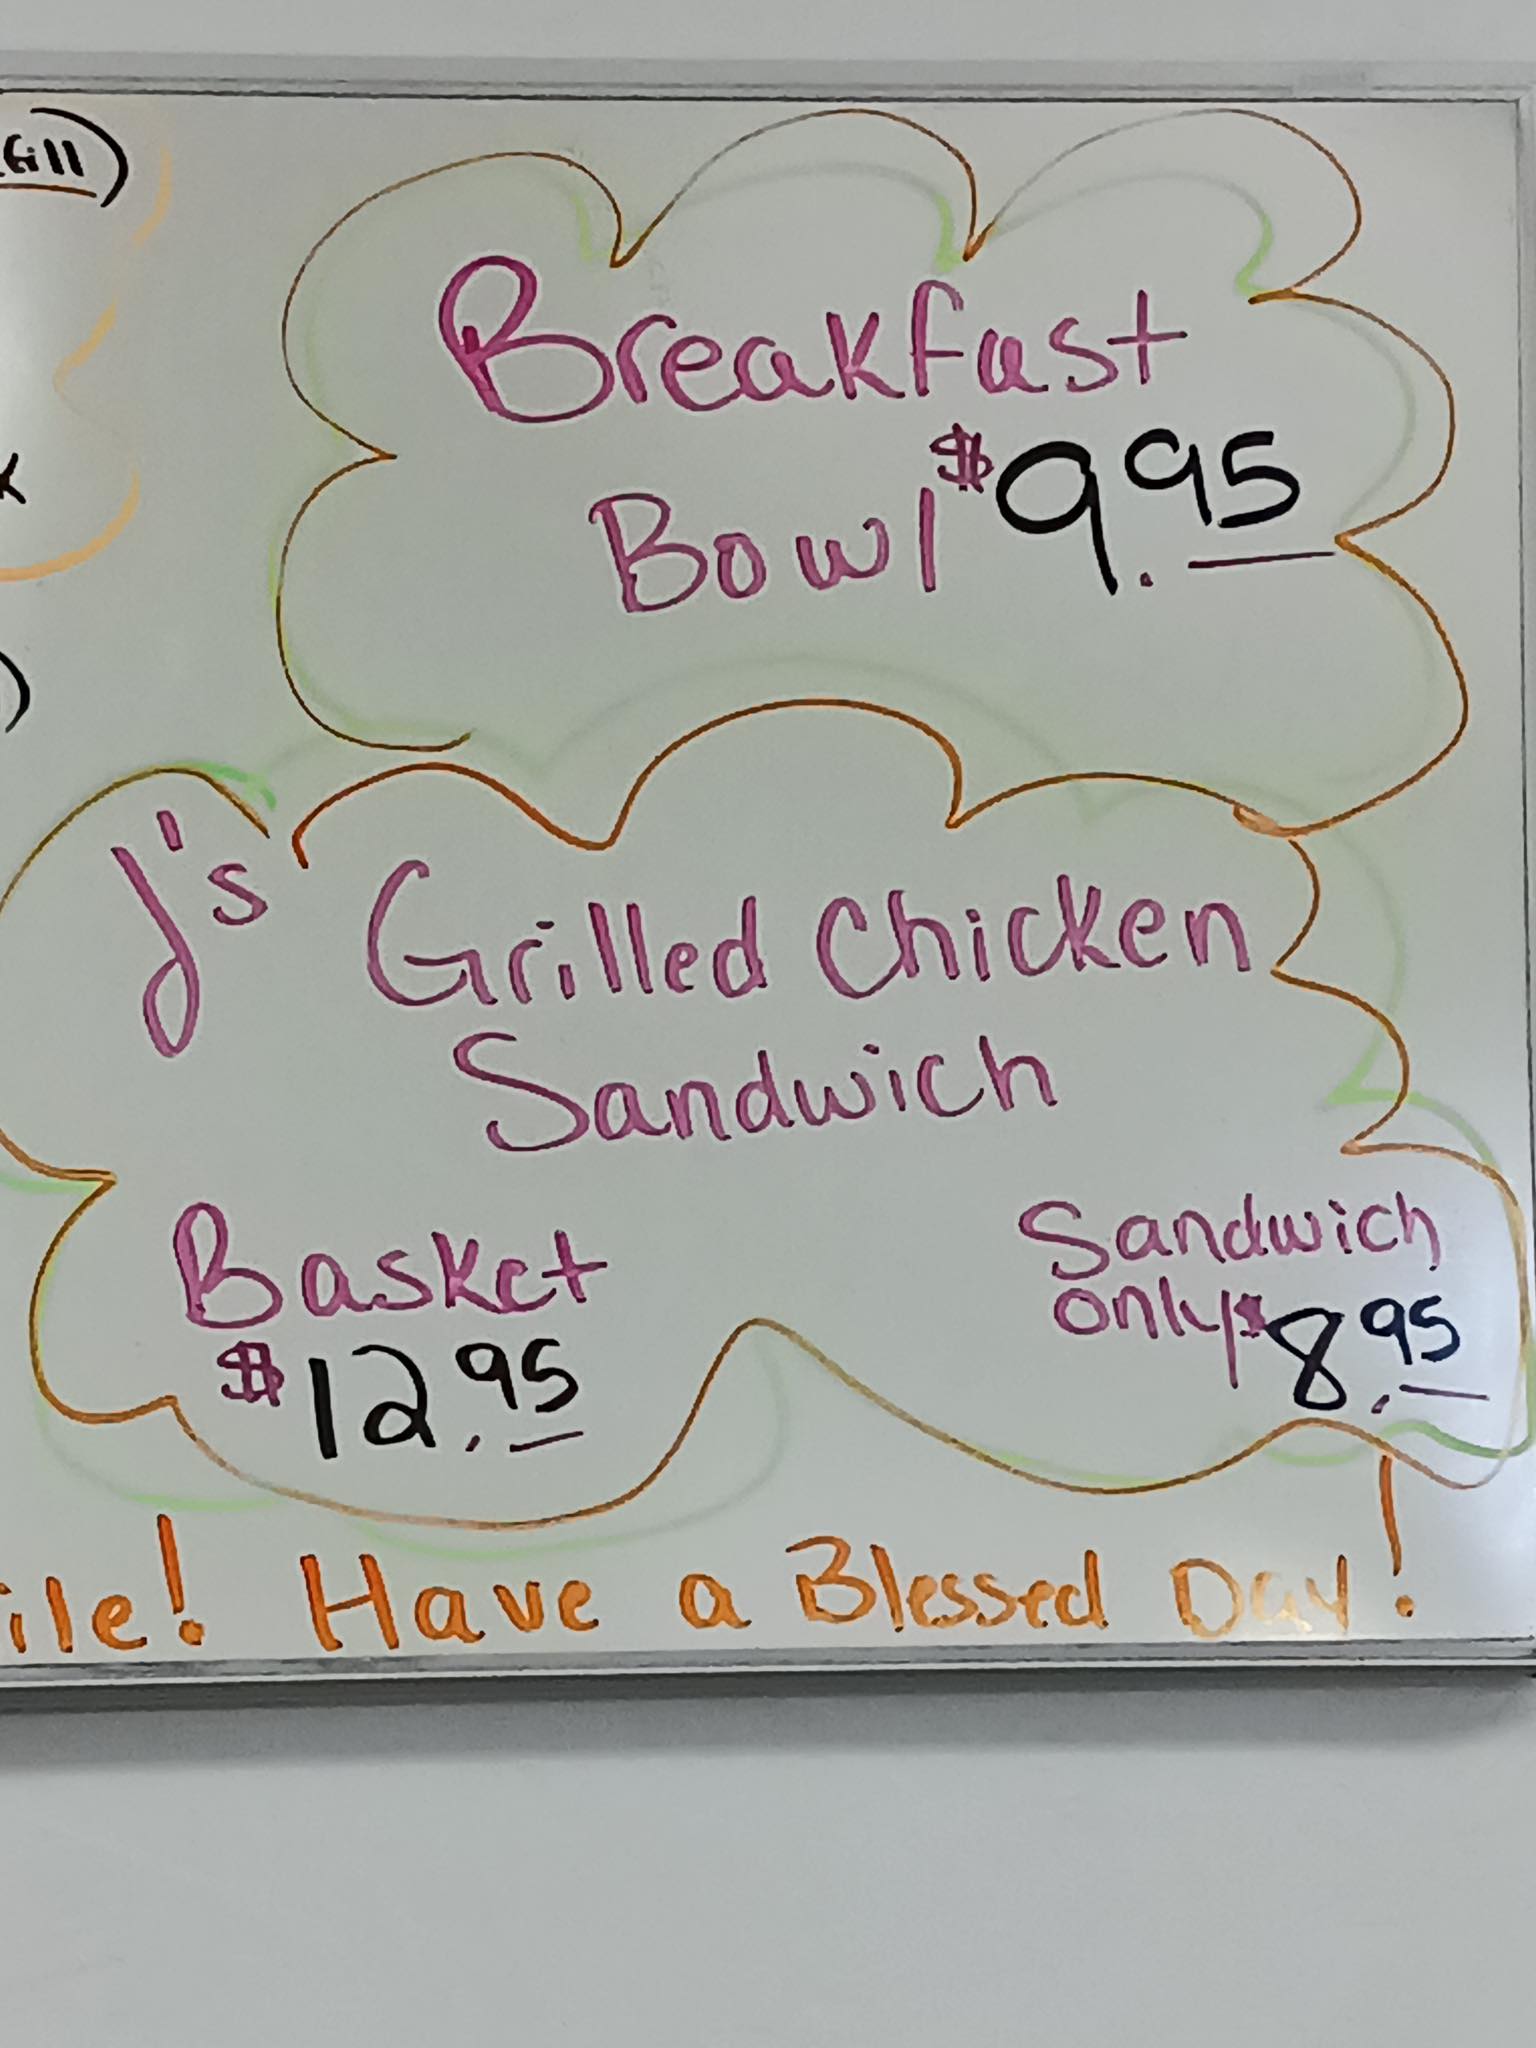 Breakfast
Bowl $9.95
J's Grilled Chicken
Sandwich
Basket
$12.95
Sandwich
only $8.95
ile! Have a Blessed Day!